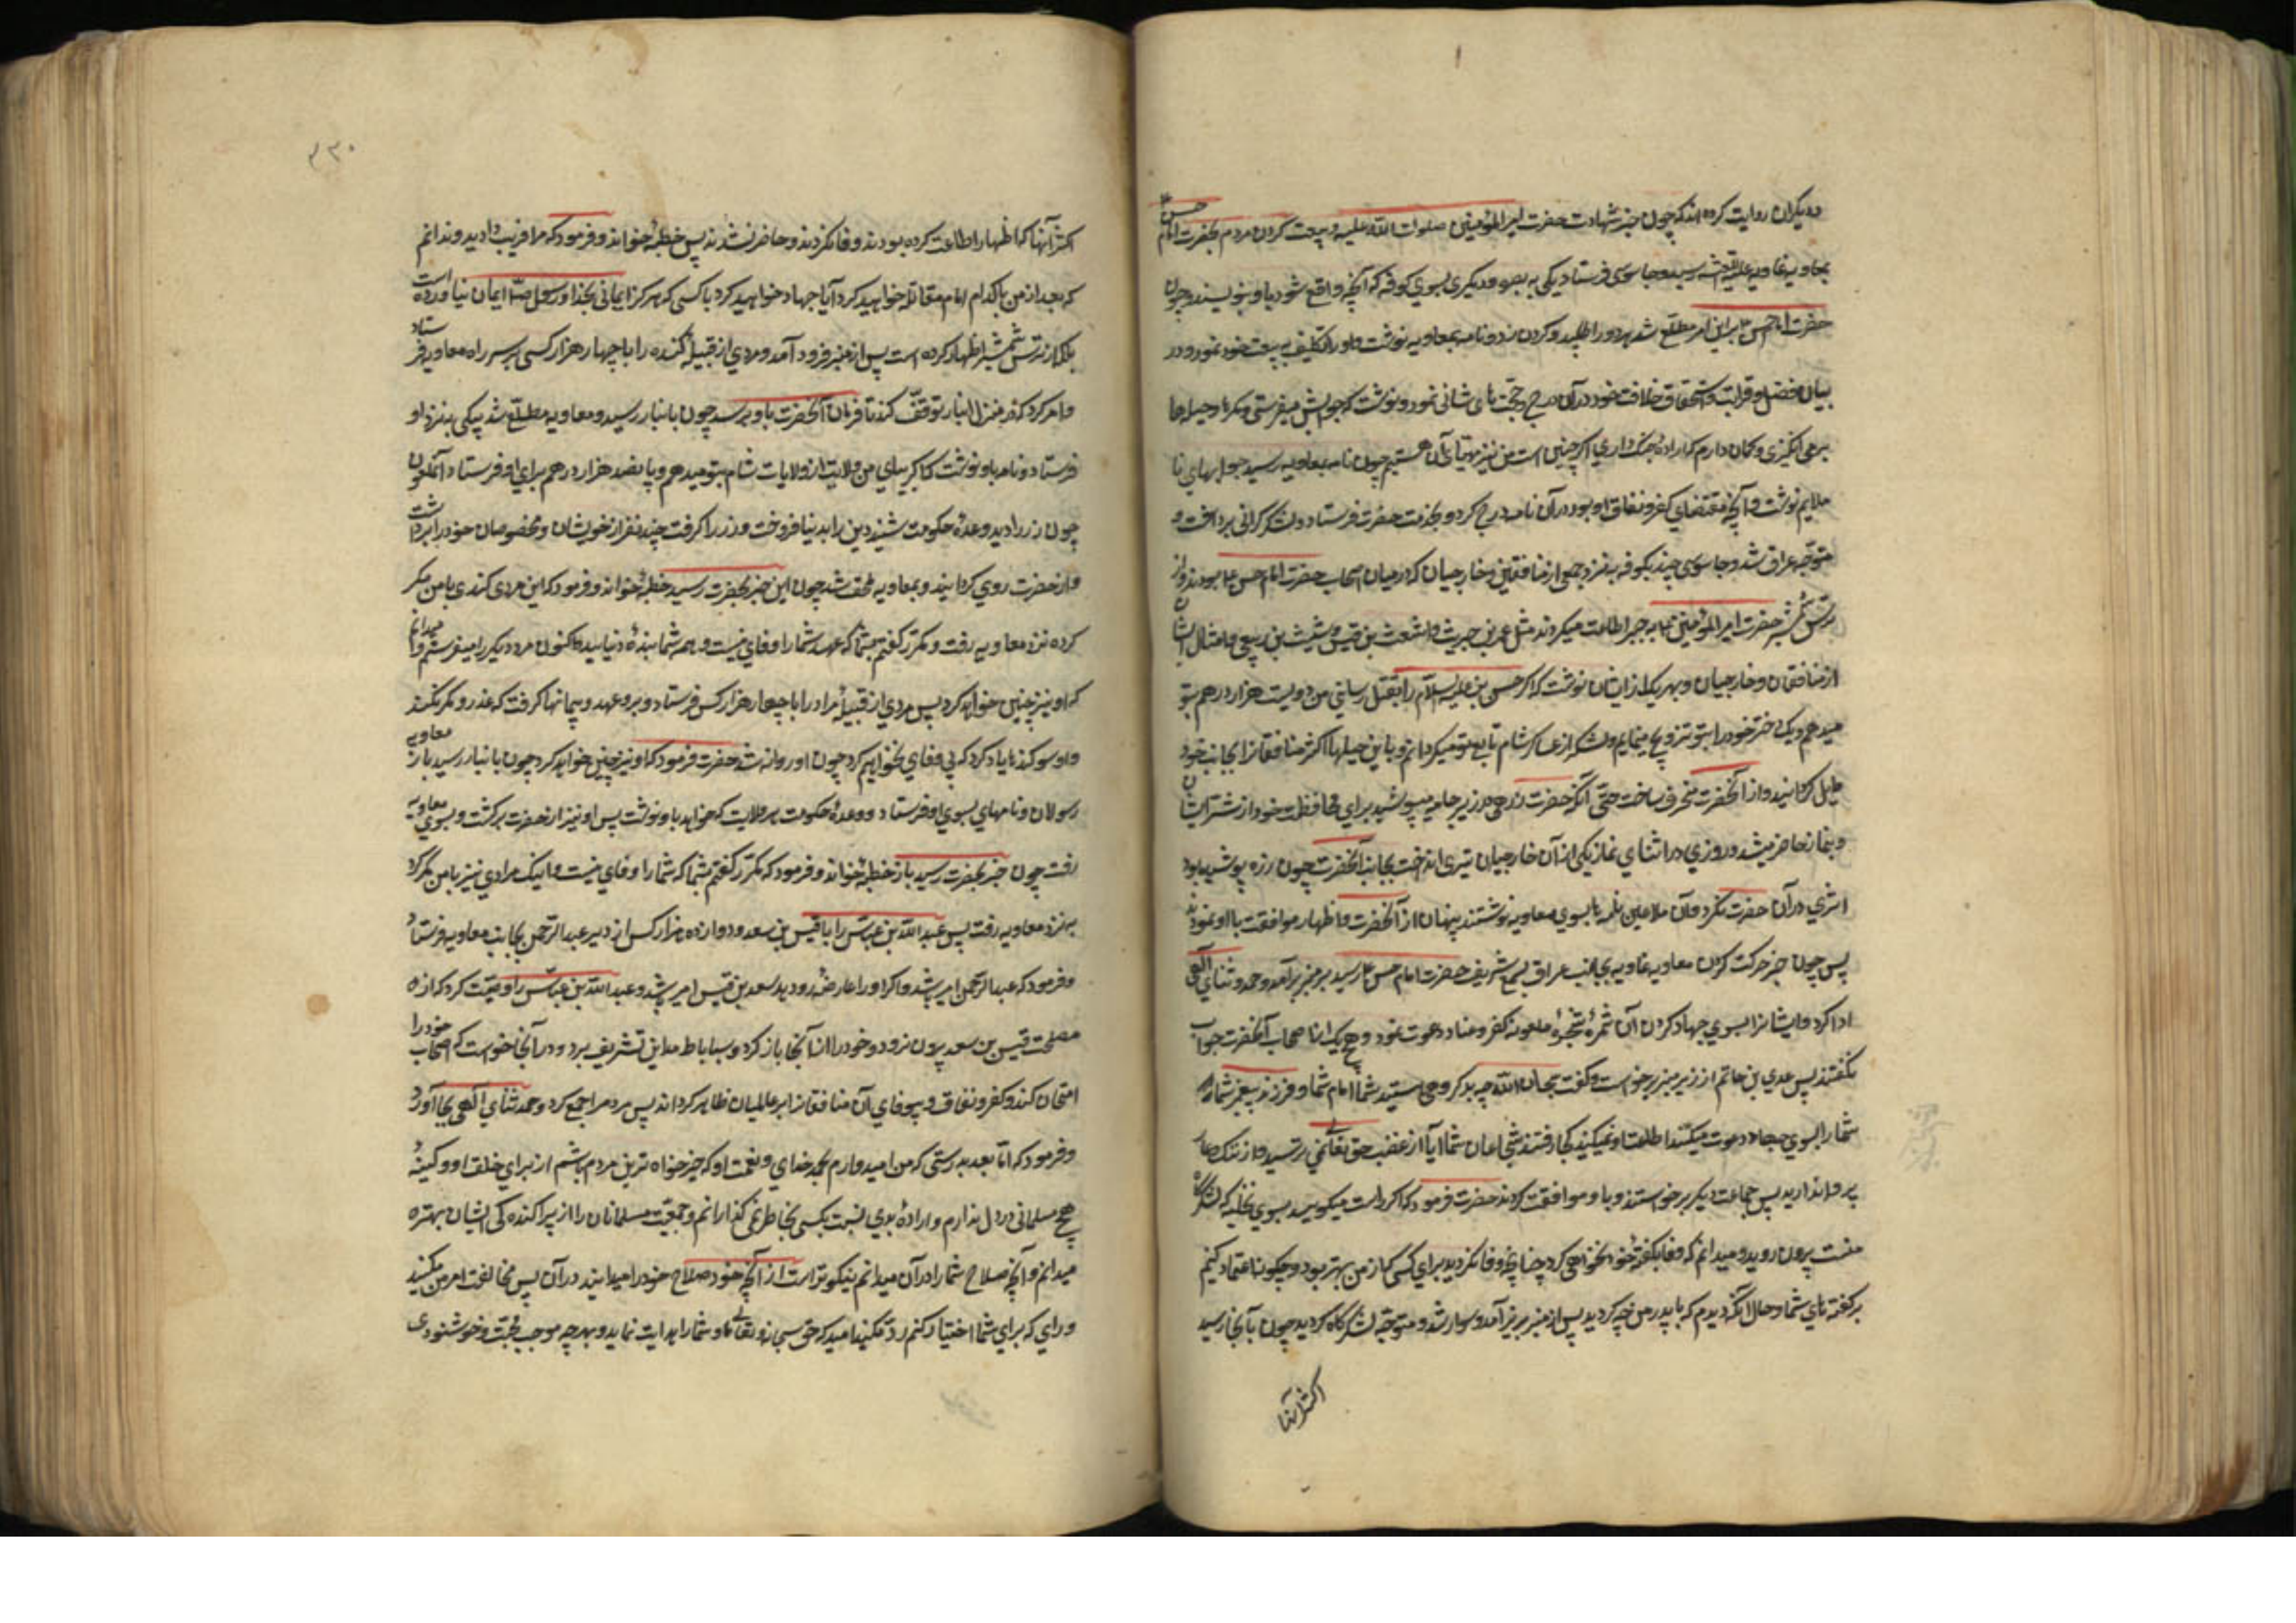 و دیگران روایت کرده اند که چون خبر شهادت حضرت امیر المؤمنین صلوات الله علیه و بیعت کردن مردم بحضرت امام حسن ع
بمعاویه غاویه علیه اللعنة رسید دو جاسوسی فرستاد یکی به بصره و دیگری بسوی کوفه که آنچه واقع شود باو بنویسند و چون
حضرت امام حسن ع بر این امر مطلع شد هر دو را طلبید و کردن زد و نامه بمعاویه نوشت و او را تکلیف به بیعت خود نمود و در
بیان فضل و قرابت و استحقاق خلافت خود در آن درج و حجّت های شافی نمود و نوشت که جواسیس میفرستی و مکرها و حیله ها
بر می انگیزی و گمان دارم که اراده جنک داری اگر چنین است من نیز مهیّای آن هستیم چون نامه بمعاویه رسید جوابهای نا
ملایم نوشت و آنچه مقتضای کفر و نفاق او بود در آن نامه درج کرد و بخدمت حضرت فرستاد و لشکر گرانی برداشت و
متوجّه عراق شد و جاسوسی چند بکوفه به نزد جمعی از منافقین و خارجیان که در میان اصحاب حضرت امام حسن ع بودند و از
ترس شمشیر حضرت امیر المؤمنین ع به جبر اطاعت میکردند مثل عمرو بن حریث و اشعث بن قیس و شیث بن ربعی و امثال ایشان
از منافقان و خارجیان و بهر یک از ایشان نوشت که اگر حسن بن علیه السلام را بقتل رسانی من دویست هزار درهم بتو
میدهم و یک دختر خود را بتو تزویج مینمایم و لشکر از عساکر شام تابع تو میکردانم و باین حیلها اکثر منافقانرا بجانب خود
مایل کردانید و از آنحضرت منحرف ساخت حتّی آنکه حضرت زرهی در زیر جامه میپوشید برای محافظت خود از شر ایشان
و بنماز حاضر میشد و روزی در اثنای نماز یکی از آن خارجیان تیری انداخت بجانب آنحضرت چون زره پوشیده بود
اثری در آن حضرت نکرد و آن ملاعین نامه ها بسوی معاویه نوشتند پنهان از آنحضرت و اظهار موافقت با او نمودند
پس چون خبر حرکت کردن معاویه غاویه بجانب عراق بسمع شریف حضرت امام حسن ع رسید بر منبر برآمد و حمد و ثنای الهی
ادا کرد و ایشانرا بسوی جهاد کردن آن ثمره شجره ملعونه کفر و عناد دعوت نمود و هیچ یک از اصحاب آنحضرت جواب
نکفتند پس عدی بن حاتم از زیر منبر برخواست و کفت سبحان الله چه بد گروهی هستید شما امام شما و فرزند پیغمبر شما
شما را بسوی جهاد دعوت میکند اطاعت او نمیکنید کجا رفتند شجاعان شما آیا از غضب حق تعالی نمی ترسید و از ننک و عار
پروا ندارید پس جماعت دیکر برخواستند و با او موافقت کردند حضرت فرمود که اگر راست میکویید بسوی نخیله که لشکرکاه
منست بیرون روید و میدانم که وفا بکفته خود نخواهی کرد چنانچه وفا نکردید برای کسی که از من بهتر بود و چکونه اعتماد کنم
بر کفته های شما و حال آنکه دیدم که با پدر من چه کردید پس از منبر بزیر آمد و سوار شد و متوجّه لشکرکاه کردید چون بآنجا رسید
اکثر آنها
۲۳۰
اکثر آنها که اظهار اطاعت کرده بودند وفا نکردند و حاضر نشدند پس خطبه خواند و فرمود که مرا فریب دادید و ندانم
که بعد از من با کدام امام مقاتله خواهید کرد آیا جهاد خواهید کرد با کسی که هرکز ایمانی بخدا و رسول ص ایمان نیاورده است
بلکه از ترس شمشیر اظهار کرده است پس از منبر فرود آمد و مردی از قبیله کنده را با چهار هزار کس بر سر راه معاویه فرستاد
و امر کرد که در منزل انبار توقّف کند تا فرمان آنحضرت باو برسد چون بانبار رسید و معاویه مطلّع شد پیکی به نزد او
فرستاد و نامه باو نوشت که اکر بیای من ولایت از ولایات شام بتو میدهم و پانصد هزار درهم برای او فرستاد آنملعون
چون زر را دید و وعده حکومت شنید دین را بدنیا فروخت و زر را کرفت و چند نفر از خویشان و مخصوصان خود را برداشت
و از حضرت روی کردانید و بمعاویه ملحق شد چون این خبر بحضرت رسید خطبه خواند و فرمود که این مرد کندی با من مکر
کرده نزد معاویه رفت و مکرّر کفتم بشما که عهد شما را وفای نیست و همه شما بنده دنیایید اکنون مرد دیکر را میفرستم و میدانم
که او نیز چنین خواهد کرد پس مردی از قبیله مراد را با چهار هزار کس فرستاد و برو عهد و پیمانها کرفت که غدر و مکر نکند
و او سوکندها یاد کرد که بی وفای نخواهم کرد چون او روانه شد حضرت فرمود که او نیز چنین خواهد کرد چون بانبار رسید باز معاویه
رسولان و نامهای بسوی او فرستاد و وعده حکومت هر ولایت که خواهد باو نوشت پس او نیز از حضرت برکشت و بسوی معاویه
رفت چون خبر بحضرت رسید باز خطبه خواند و فرمود که مکرّر کفتم بشما که شما را وفای نیست و اینک مرادی نیز با من مکر کرد
به نزد معاویه رفت پس عبد الله بن عباس را با قیس بن سعد و دوازده هزار کس از دیر عبد الرحمن بجانب معاویه فرستاد
و فرمود که عبد الرحمن امیر باشد و اکر او را عارضه رو دید سعد بن قیس امیر باشد و عبد الله بن عباس را وصیّت کرد که از
مصلحت قیس بن سعد بیرون نرود و خود را از آنجا باز کرد و بساباط مداین تشریف برد و در آنجا خواست که اصحاب خود را
امتحان کند و کفر و نفاق و بیوفای آن منافقانرا بر عالمیان ظاهر کرداند پس مردم را جمع کرد و حمد و ثنای الهی بجا آورد
و فرمود که امّا بعد بدرستی که من امیدوارم بحمد خدای و نعمت او که خیرخواه ترین مردم باشم از برای خلق او و کینه
هیچ مسلمانی در دل ندارم و اراده بدی نسبت بکسی بخاطر نمی کذرانم و جمعیّت مسلمانان را از پراکنده کی ایشان بهتر
میدانم و آنچه صلاح شما را در آن میدانم نیکوتر است از آنچه خود صلاح خود را میدانید در آن پس مخالفت امر من مکنید
و رای که برای شما اختیار کنم رد مکنید امید که حق سبحانه و تعالی ما و شما را هدایت نماید و بهر چه موجب محبّت و خوشنودی